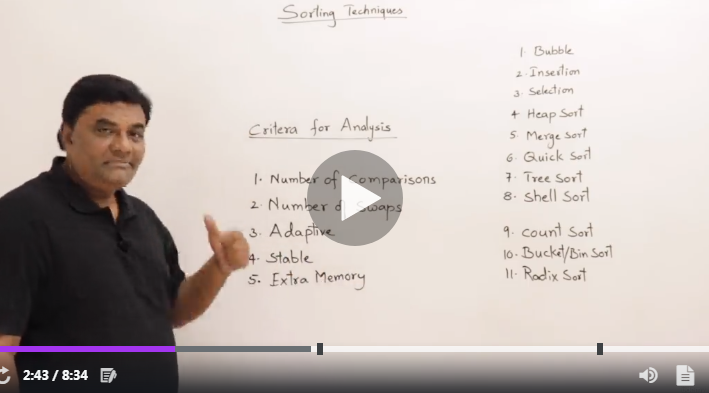 Sorting Techniques
Critera for Analysis
1. Number of Comparisons
2. Number of Swaps
3. Adaptive
4. Stable
5. Extra Memory
1. Bubble
2. Insertion
3. Selection
4 Heap Sort
5. Merge Sort
6. Quick Sort
7. Tree Sort
8. Shell Sort
9. Count Sort
10. Bucket/Bin Sort
11. Radix Sort
2:43 / 8:34